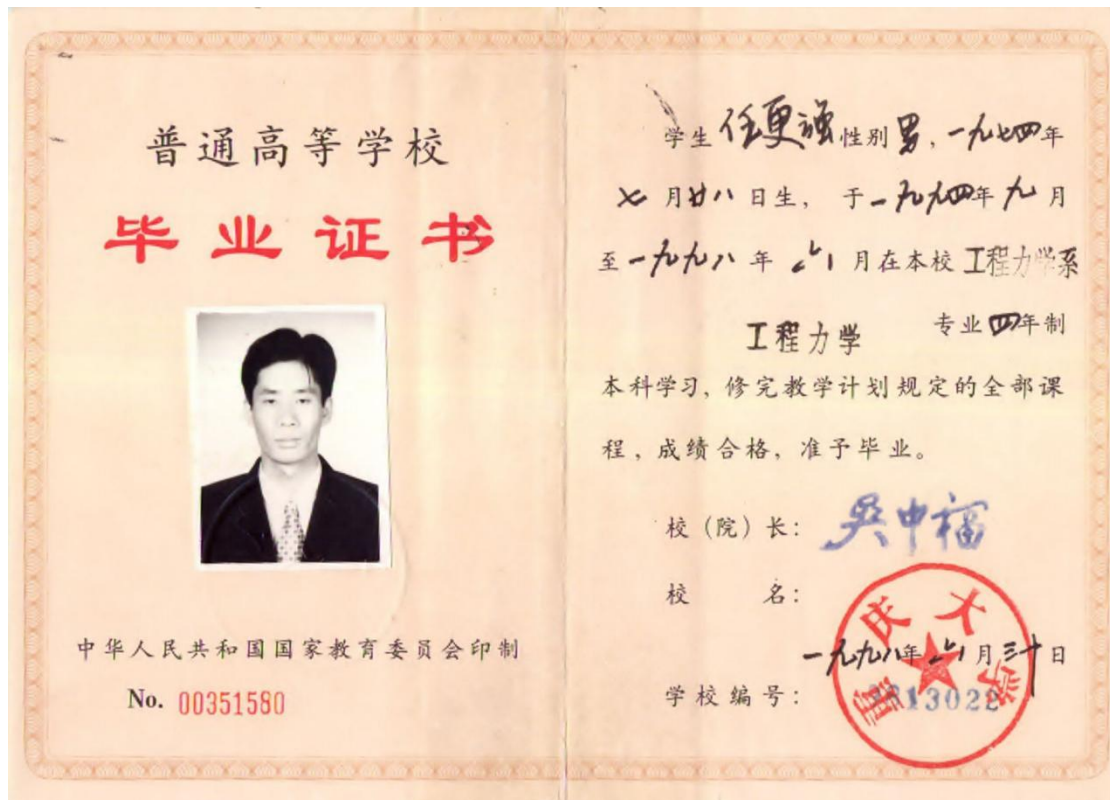 普通高等学校
毕业证书
中华人民共和国国家教育委员会印制
No. 00351580
学生任更强性别男，一九七四年
七月廿八日生，于一九九四年九月
至一九九八年六月在本校工程力学系
工程力学专业四年制
本科学习，修完教学计划规定的全部课
程，成绩合格，准予毕业。
校（院）长：吴中福
校名：
重庆大学
一九九八年六月三十日
学校编号：
13022